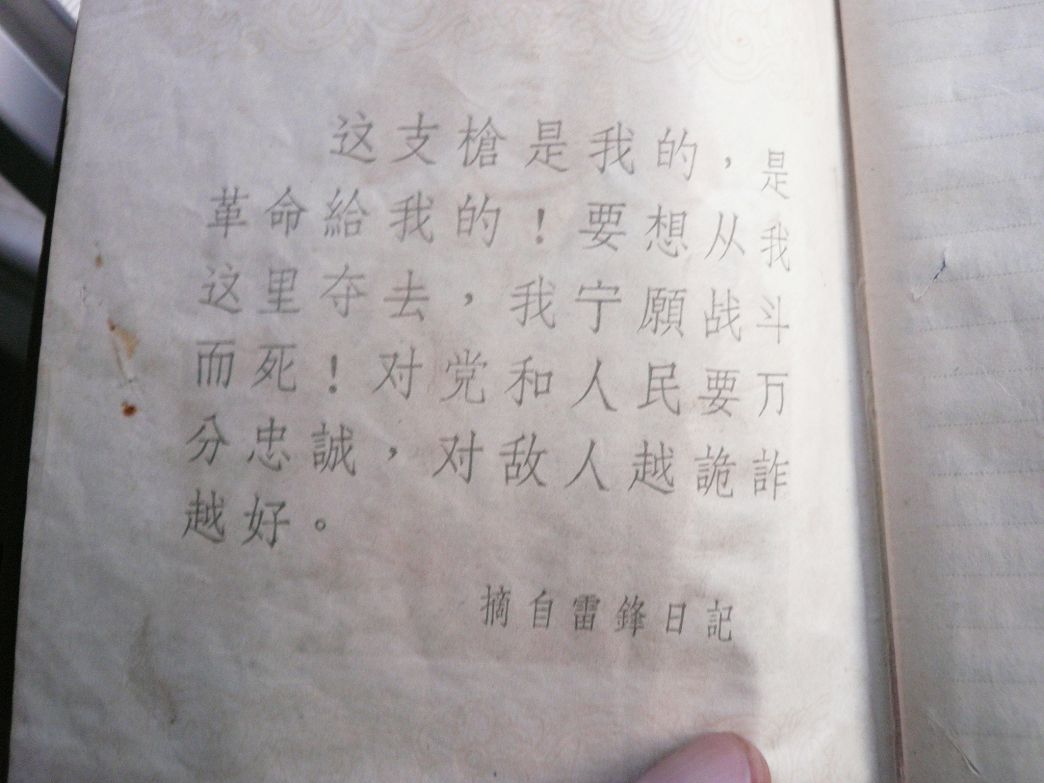 这支槍是我的，是
革命給我的！要想从我
这里夺去，我宁願战斗
而死！对党和人民要万
分忠誠，对敌人越詭詐
越好。
摘自雷鋒日記